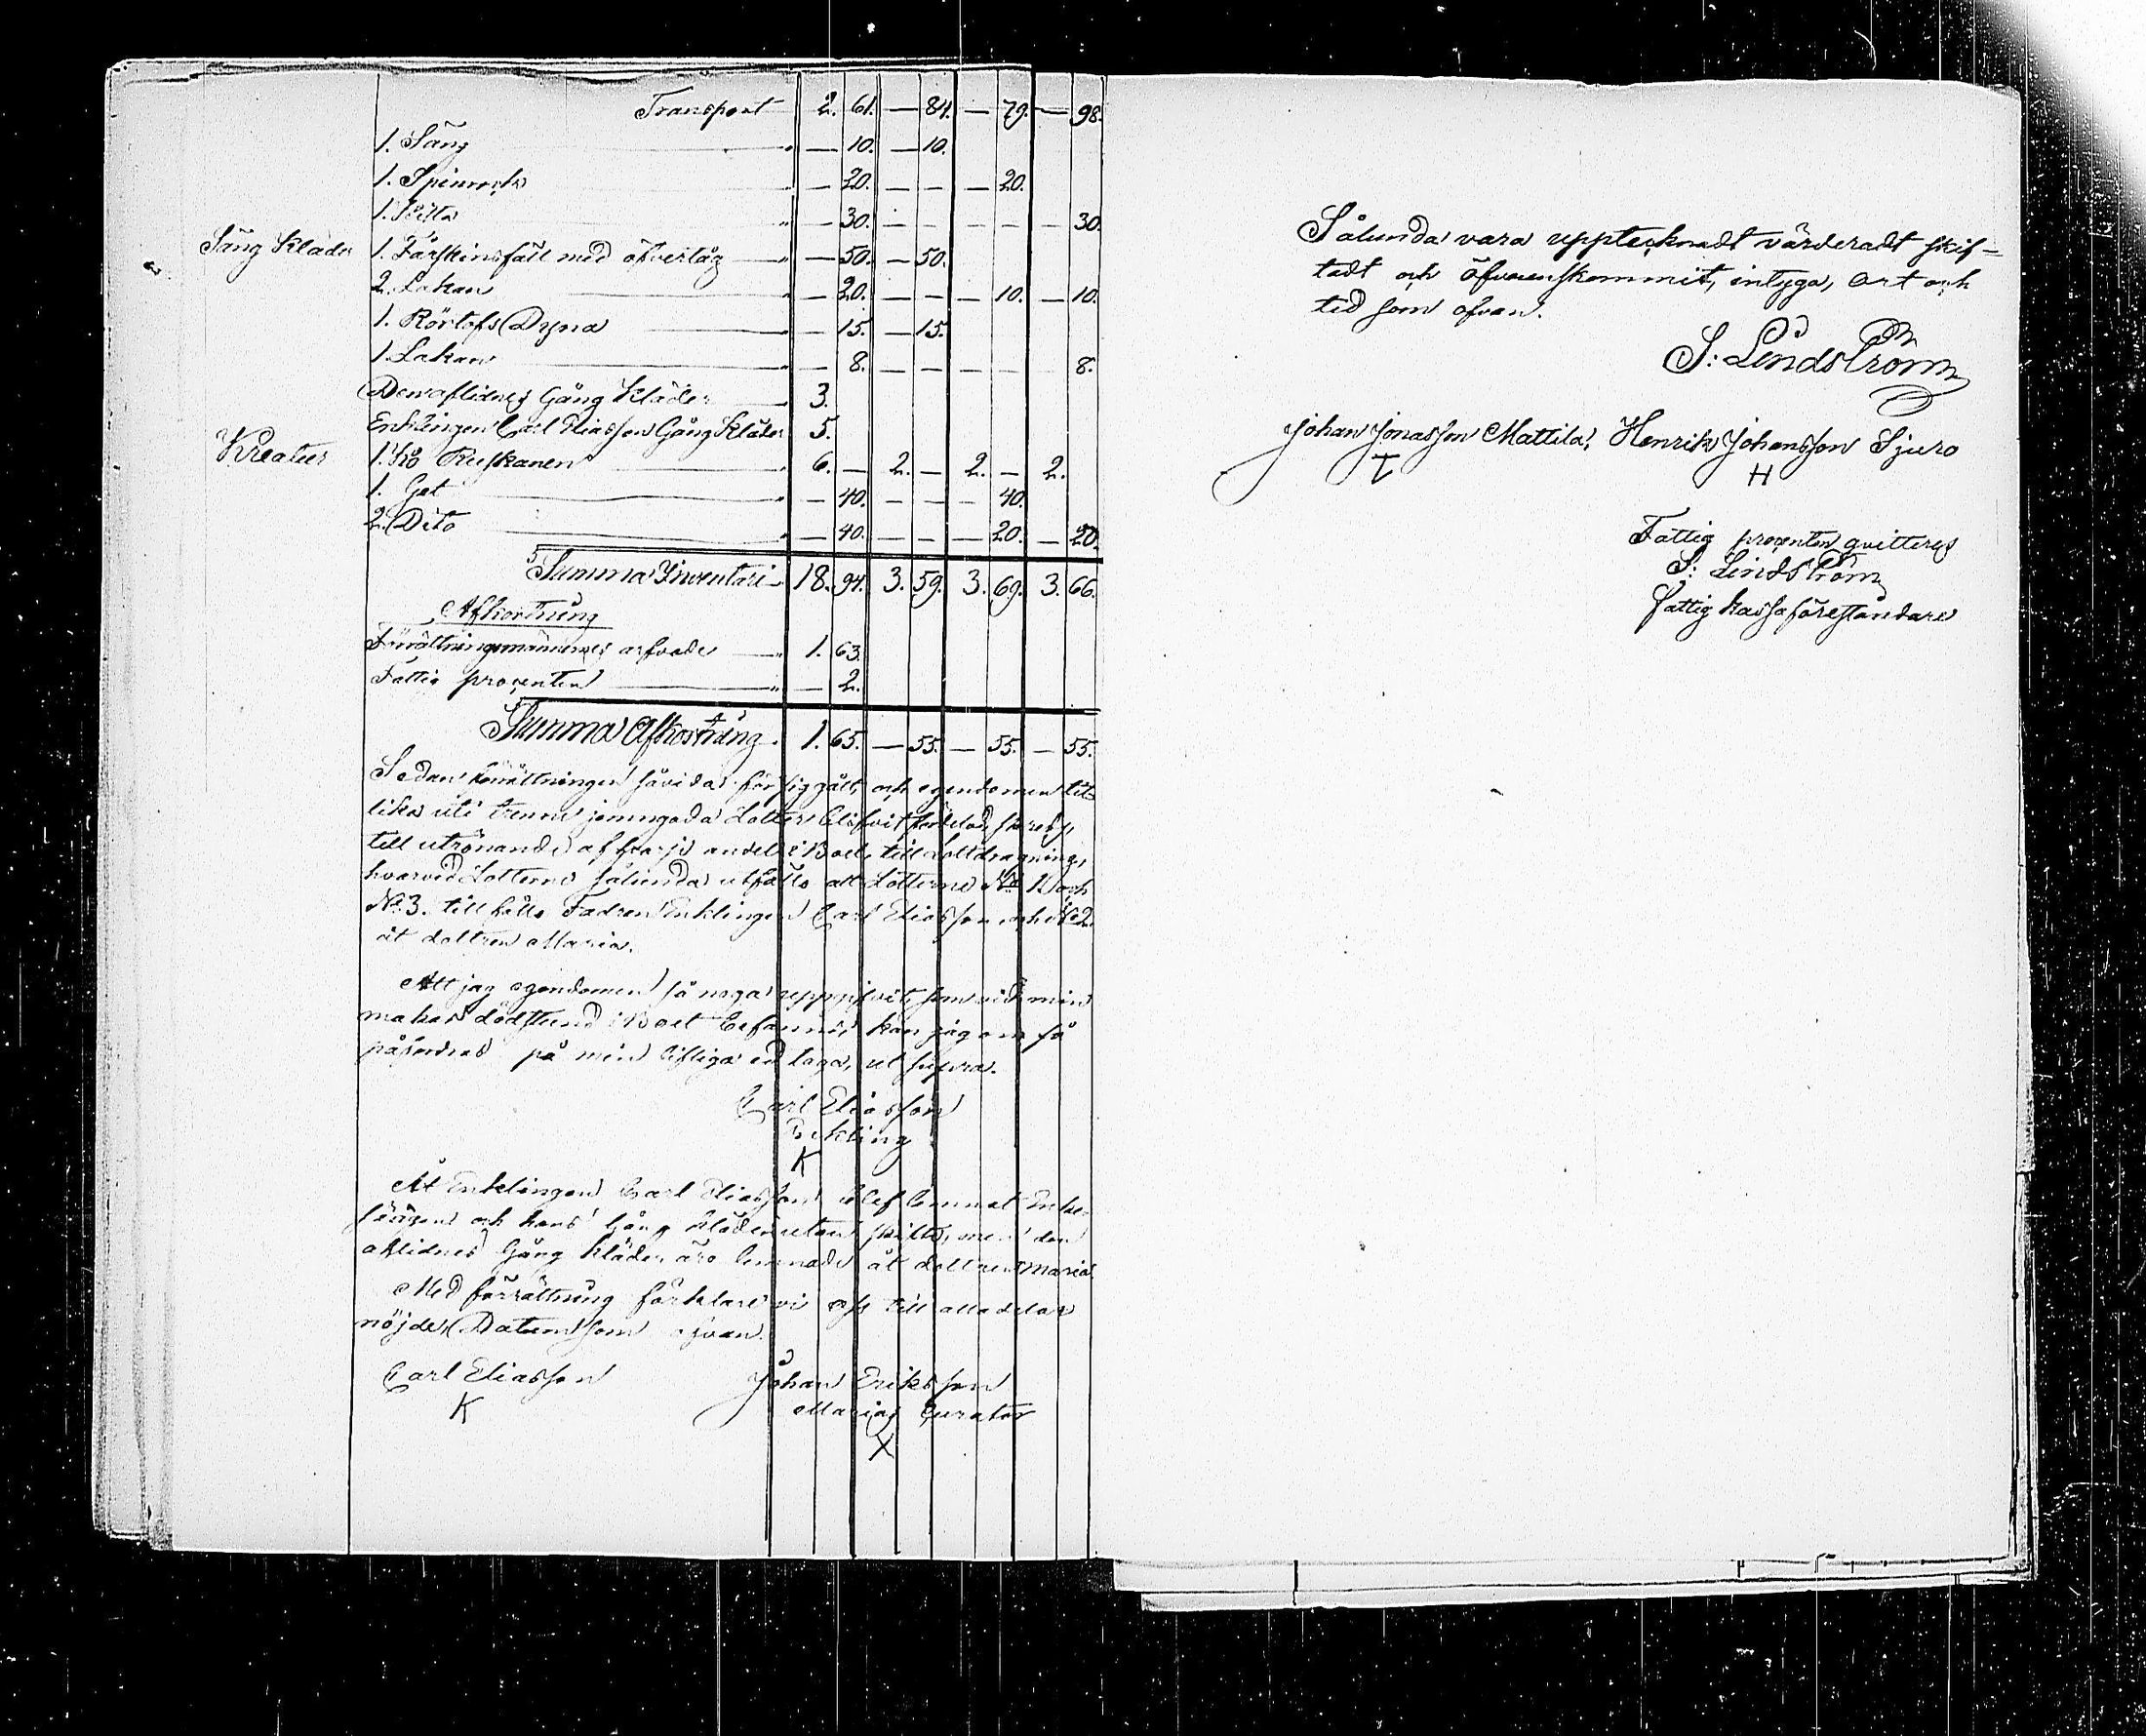 Transport 2. 61. — 84. — 79. — 98.
1. Säng " — 10. — 10.
1. Spinrock " — 20. — — — 20.
1. " — 30. — — — — — 30.
Säng Kläder 1. Fårskinsfäll med öfvertåg " — 50. — 50.
2. Lakan " — 20. — — — 10. — 10.
1. Rörtofs Dyna " — 15. — 15.
1. Lakan " — 8. — — — — 8.
Den aflidnes Gång Kläder " 3.
Enklingen Carl Eliassons Gång Kläder 5.
Kreatur 1. Ko Ruskanen " 6. — 2. — 2. — 2.
1. Get " — 40. — — — 40.
2. Dito " — 40. — — — 20. — 20.
Summa Inventari 18. 94. 3. 59. 3. 69. 3. 66.
Afkortning
Förrättningsmännernes arfvode " 1. 63.
Fattig procenten " — 2.
Summa Afkortning. 1. 65. — 55. — 55. — 55.
Sedan förrättningen såvida för sig gått, och egendomen
lika uti trenne jemngoda Lotter blifvit fördelad, skreds
till utrönande af hvars andel i Boet, till Lottdragning,
hvarvid Lotterne sålunda utföllo att Lotterne No 1 och
No 3. tillhölle Fadren Enklingen Carl Eliasson och No 2
åt dottren Maria.
Att jag egendomen så noga uppgifvit, som vid min
makas dödstund i Boet befanns, kan jag om så
påfordras på min lifliga ed taga, ut supra.
Carl Eliasson
Enkling
K
Åt Enklingen Carl Eliasson blef lemnat Enke
sängen och hans Gång kläder utan skifte, men den
aflidnes Gång kläder äro lemnade åt dottren Maria.
Med förrättning förklare vi oss till alla delar
nöjde, Datum som ofvan.
Carl Eliasson Johan Eriksson
K Marias Curator
X
Sålunda vara upptecknadt värderadt skif=
tadt och öfverenskommit, intyga, ort och
tid som ofvan.
S: Lindström
Johan Jonasson Mattila, Henrik Johansson Sjuro
T H
Fattig procenten qvitteras
S: Lindström
fattig kassaföreståndare